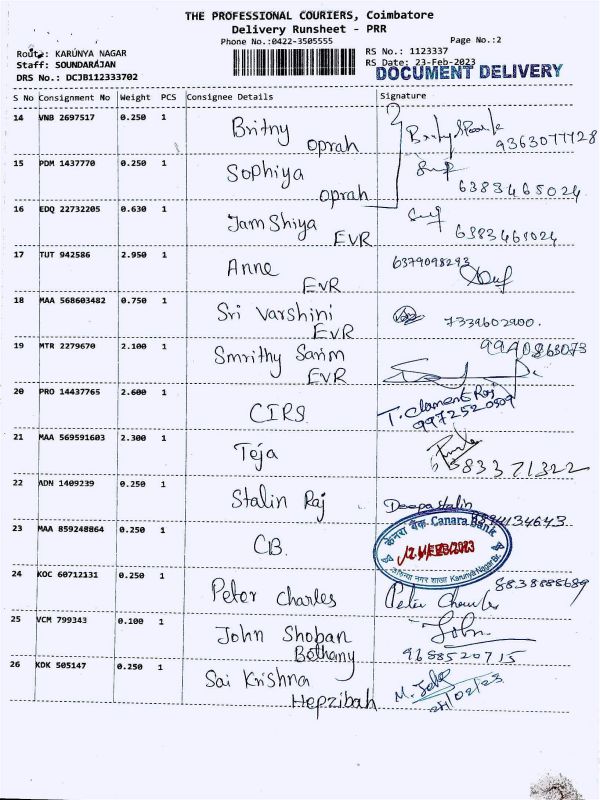 THE PROFESSIONAL COURIERS, Coimbatore
Delivery Runsheet - PRR
Phone No.:0422-3505555
Page No.:2
Route: KARUNYA NAGAR
RS No.: 1123337
Staff: SOUNDARAJAN
RS Date: 23-Feb-2023
DRS No.: DCJB112333702
DOCUMENT DELIVERY
S No Consignment No Weight PCS Consignee Details Signature
14 VNB 2697517 0.250 1 Britny
Oprah 9363077728
15 PDM 1437770 0.250 1 Sophiya
Oprah 6383465024
16 EDQ 22732205 0.630 1 Jamshiya
EVR 6383461024
17 TUT 942586 2.950 1 Anne 6379098293
EVR
18 MAA 568603482 0.750 1 Sri Varshini
EVR 7339602900.
19 MTR 2279670 2.100 1 Smrithy Sarim
EVR
20 PRO 14437765 2.600 1 CIRS T. Clament Raj
9972520509
21 MAA 569591603 2.300 1 Teja
6383371322
22 ADN 1409239 0.250 1 Stalin Raj Deepa Stalin
23 MAA 859248864 0.250 1 CB. केनरा बैंक Canara Bank
Karunya Nagar Br.
24 KOC 60712131 0.250 1 Peter Charles 8838888689
Peter
25 VCM 799343 0.100 1 John Shoban John
Bethany 9688520715
26 KDK 505147 0.250 1 Sai Krishna
Hepzibah